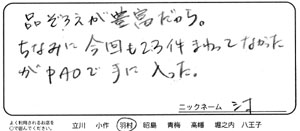 品ぞろえが豊富だから。
ちなみに今回も23件まわってなかた
がPAOで手に入った。
ニックネーム
よく利用されるお店を
○で囲んでください。
立川 小作 羽村 昭島 青梅 高幡 堀之内 八王子